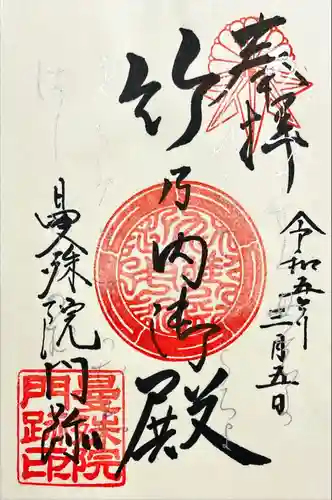 奉拝
令和五年三月五日
竹乃内御殿
曼殊院門跡
曼殊院
門跡印